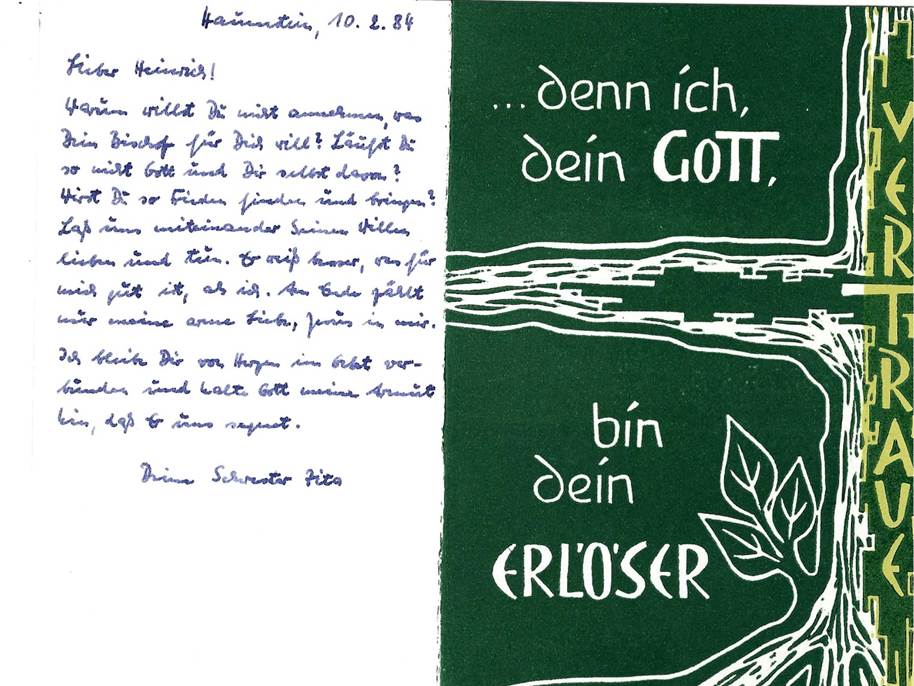 Hauenstein, 10. 2. 84
Lieber Heinrich!
Warum willst Du nicht annehmen, was
Dein Bischof für Dich will? Läufst Du
so nicht Gott und Dir selbst davon?
Wirst Du so Frieden finden und bringen?
Laß uns miteinander Seinen Willen
lieben und tun. Er weiß besser, was für
mich gut ist, als ich. Am Ende zählt
nur meine arme Liebe, Jesus in mir.
Ich bleibe Dir von Herzen im Gebet ver-
bunden und halte Gott meine Armut
hin, daß Er uns segnet.
Deine Schwester Zita
...denn ich,
dein GOTT,
bin
dein
ERLÖSER
VERTRAUE